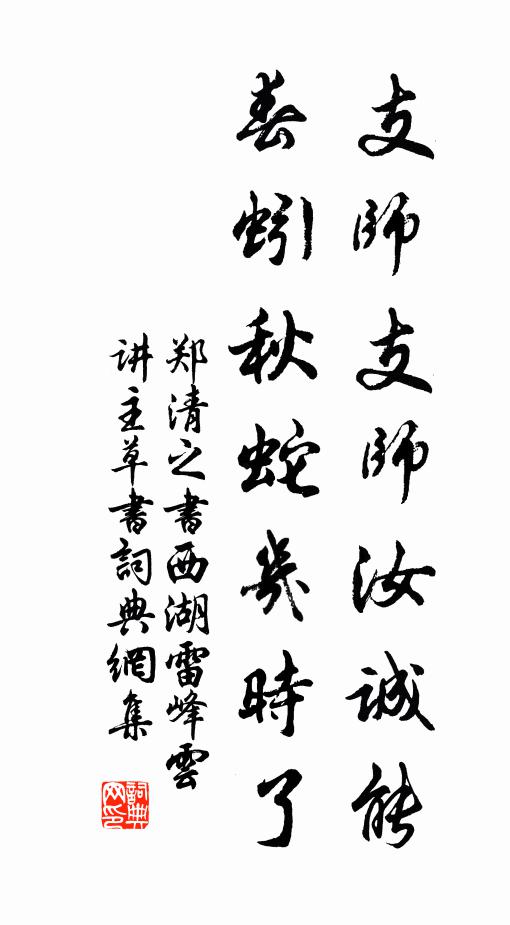 支師支師汝誠能
春蚓秋蛇幾時了
郑清之書西湖雷峰雲
讲主草書詞典網集
詞典网印